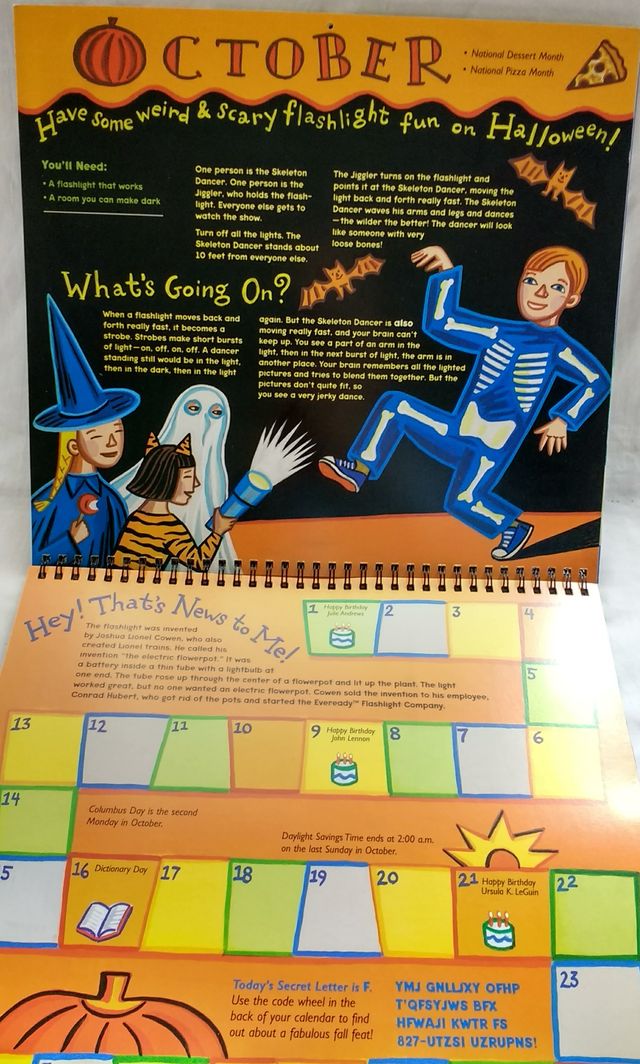 OCTOBER
• National Dessert Month
• National Pizza Month
Have some weird & scary flashlight fun on Halloween!
You'll Need:
• A flashlight that works
• A room you can make dark
One person is the Skeleton
Dancer. One person is the
Jiggler, who holds the flash-
light. Everyone else gets to
watch the show.
Turn off all the lights. The
Skeleton Dancer stands about
10 feet from everyone else.
The Jiggler turns on the flashlight and
points it at the Skeleton Dancer, moving the
light back and forth really fast. The Skeleton
Dancer waves his arms and legs and dances
—the wilder the better! The dancer will look
like someone with very
loose bones!
What's Going On?
When a flashlight moves back and
forth really fast, it becomes a
strobe. Strobes make short bursts
of light—on, off, on, off. A dancer
standing still would be in the light,
then in the dark, then in the light
again. But the Skeleton Dancer is also
moving really fast, and your brain can't
keep up. You see a part of an arm in the
light, then in the next burst of light, the arm is in
another place. Your brain remembers all the lighted
pictures and tries to blend them together. But the
pictures don't quite fit, so
you see a very jerky dance.
Hey! That's News to Me!
The flashlight was invented
by Joshua Lionel Cowen, who also
created Lionel trains. He called his
invention "the electric flowerpot." It was
a battery inside a thin tube with a lightbulb at
one end. The tube rose up through the center of a flowerpot and lit up the plant. The light
worked great, but no one wanted an electric flowerpot. Cowen sold the invention to his employee,
Conrad Hubert, who got rid of the pots and started the Eveready™ Flashlight Company.
1 Happy Birthday
Julie Andrews
2
3
4
5
13
12
11
10
9 Happy Birthday
John Lennon
8
7
6
14
Columbus Day is the second
Monday in October.
Daylight Savings Time ends at 2:00 a.m.
on the last Sunday in October.
5
16 Dictionary Day
17
18
19
20
21 Happy Birthday
Ursula K. LeGuin
22
23
Today's Secret Letter is F.
Use the code wheel in the
back of your calendar to find
out about a fabulous fall feat!
YMJ GNLLJXY OFHP
T'QFSYJWS BFX
HFWAJI KWTR FS
827-UTZSI UZRUPNS!